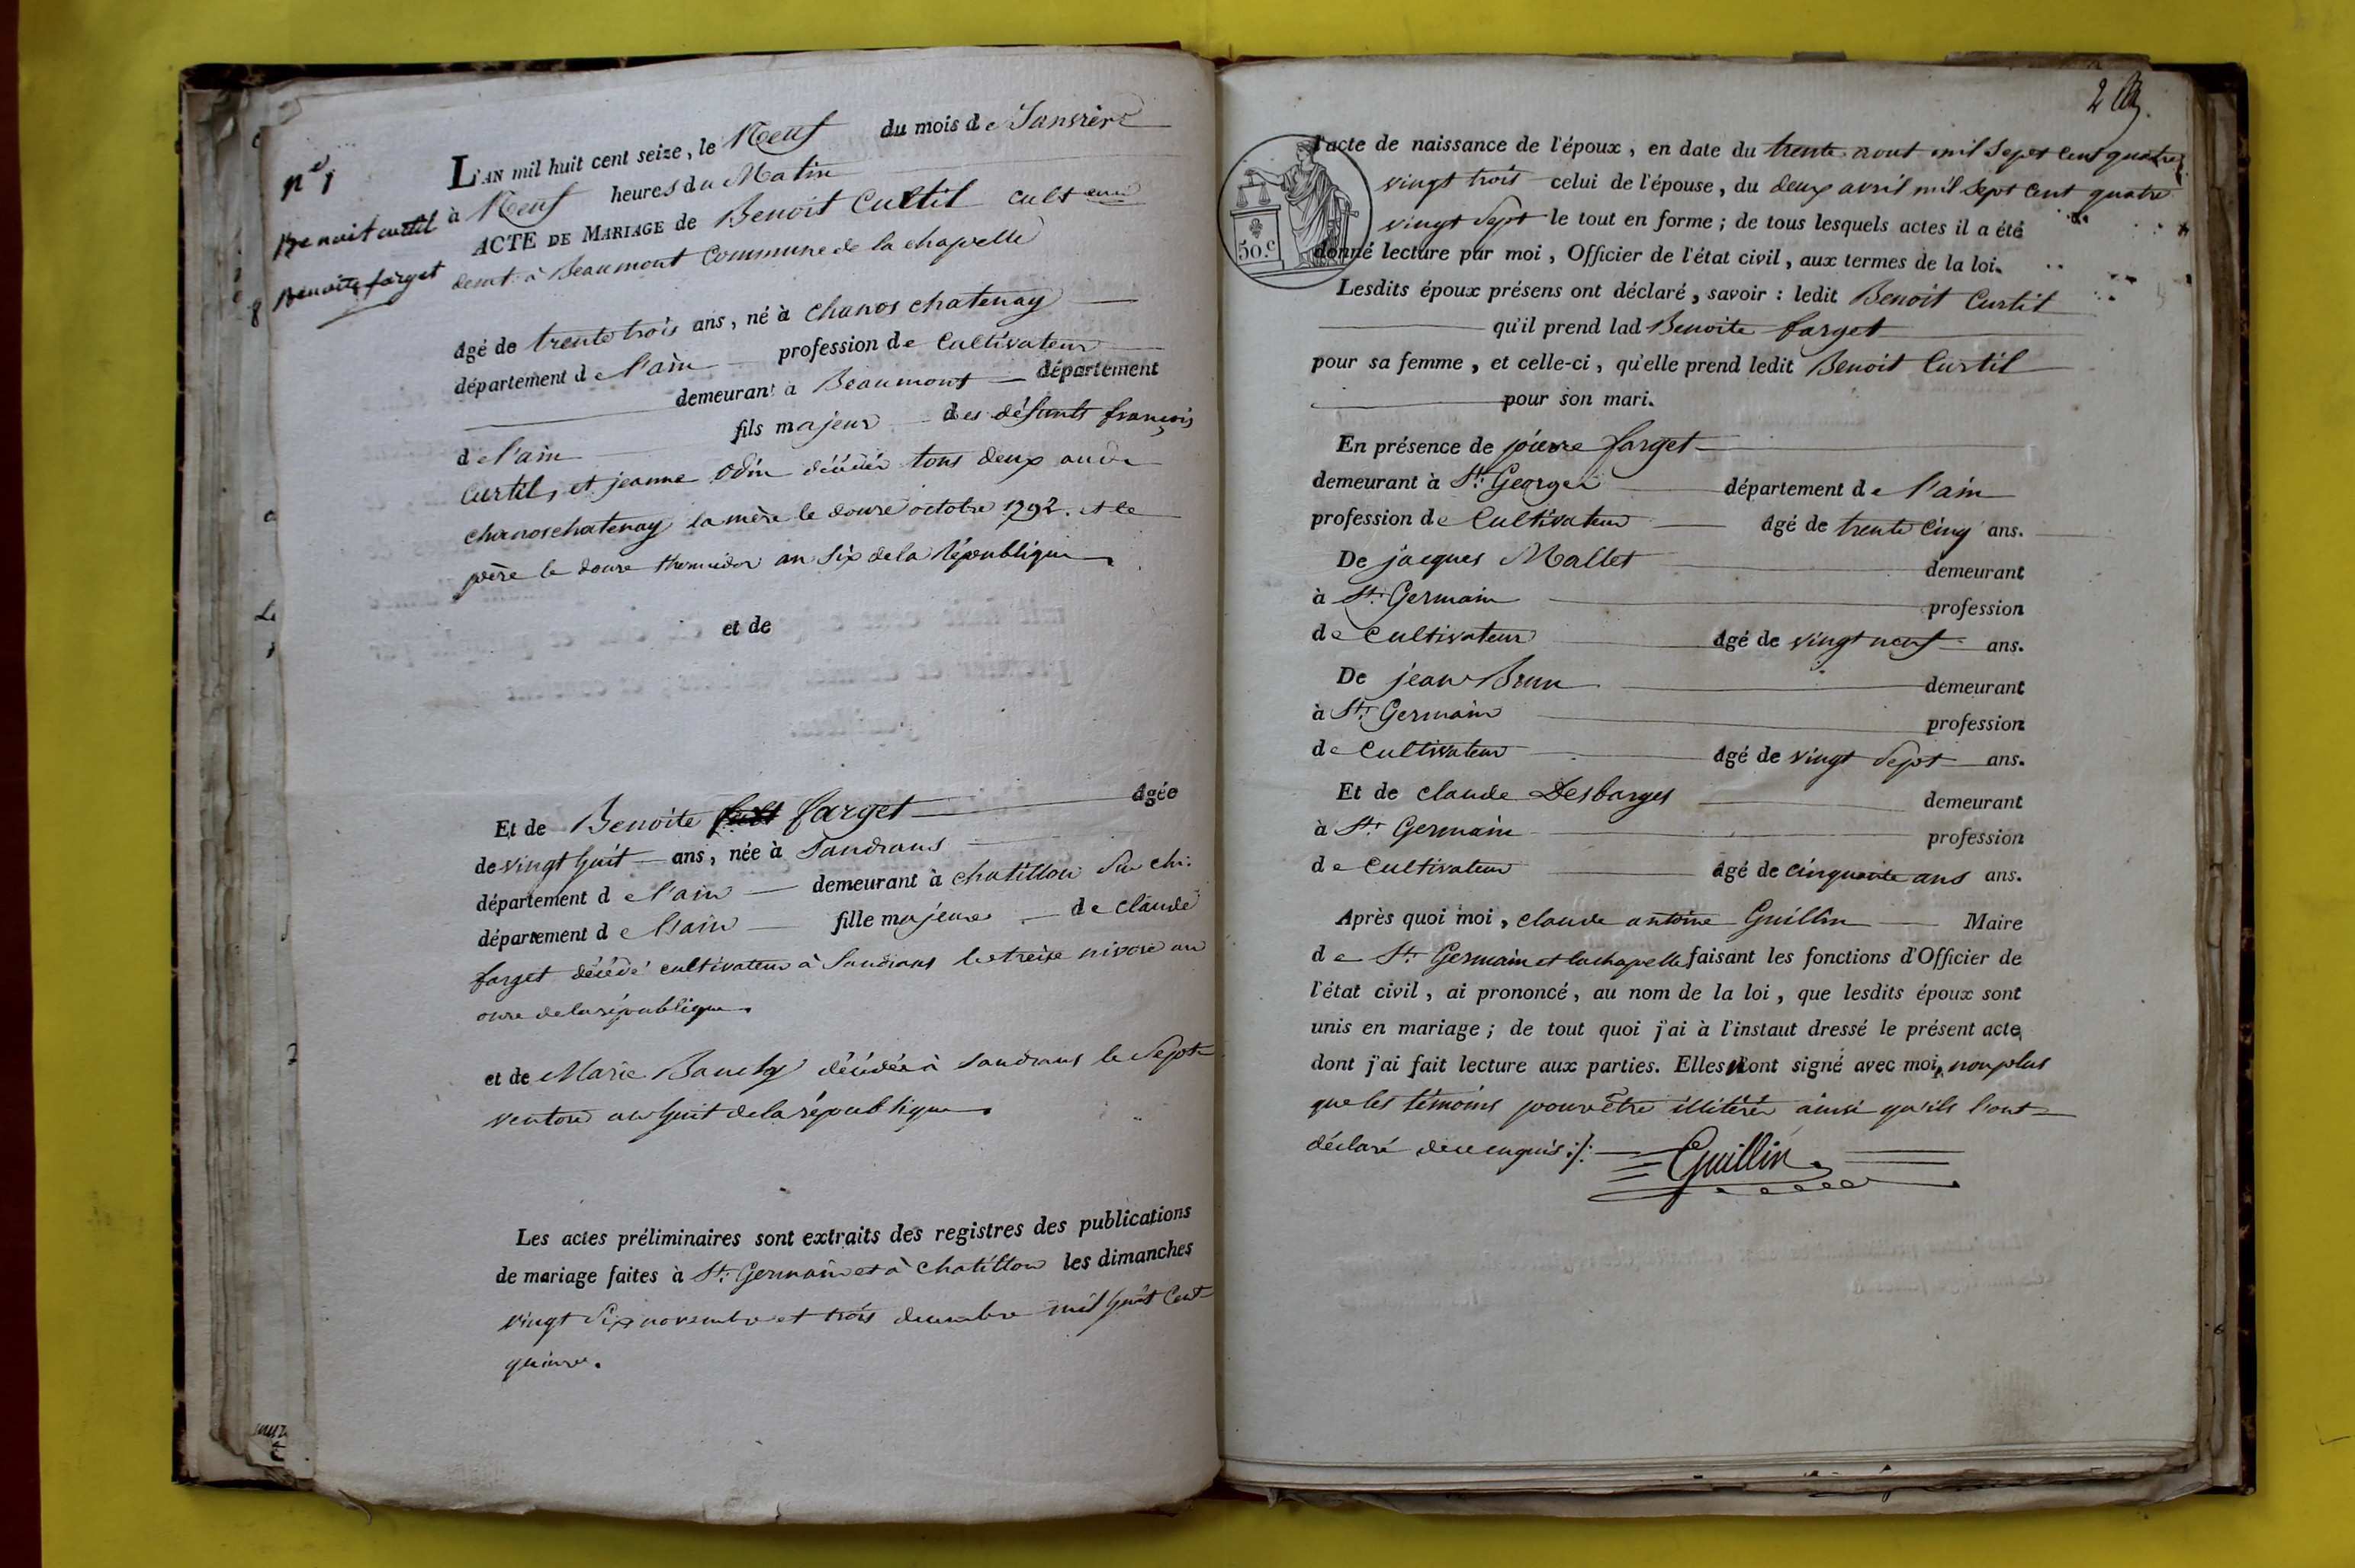 nº 1
Benoit curtil
Benoite farget
L'AN mil huit cent seize, le Neuf du mois de Janvier
à Neuf heures du Matin
ACTE DE MARIAGE de Benoit Curtil cult eur
demt à Beaumont Commune de la chapelle
âgé de trente trois ans, né à Chanos chatenay
département de l'ain profession de Cultivateur
demeurant à Beaumont département
de l'ain fils majeur des défunts françois
Curtil, et jeanne Odin décédés tous deux audt
chanoschatenay la mère le douze octobre 1792. et le
père le douze thermidor an six de la République.
et de
Et de Benoite farget âgée
de vingt huit ans, née à Sandrans
département de l'ain demeurant à chatillon sur ch:
département de l'ain fille majeure de claude
farget décédé cultivateur à Sandrans le treize nivose an
onze de la république.
et de Marie Bauchy décédée à Sandrans le Sept
ventose an huit de la république.
Les actes préliminaires sont extraits des registres des publications
de mariage faites à St. Germain et à Chatillon les dimanches
vingt Six novembre et trois decembre mil huit Cent
quinze.
2
l'acte de naissance de l'époux, en date du trente aout mil Sept Cent quatre
vingt trois celui de l'épouse, du deux avril mil Sept Cent quatre
vingt Sept le tout en forme; de tous lesquels actes il a été
50.c donné lecture par moi, Officier de l'état civil, aux termes de la loi.
Lesdits époux présens ont déclaré, savoir: ledit Benoit Curtil
qu'il prend lad Benoite farget
pour sa femme, et celle-ci, qu'elle prend ledit Benoit Curtil
pour son mari.
En présence de pierre farget
demeurant à St. Georges département de l'ain
profession de Cultivateur âgé de trente Cinq ans.
De jacques Mallet demeurant
à St. Germain profession
de Cultivateur âgé de vingt neuf ans.
De jean Brun demeurant
à St. Germain profession
de Cultivateur âgé de vingt Sept ans.
Et de claude Desbarges demeurant
à St. Germain profession
de Cultivateur âgé de cinquante ans ans.
Après quoi moi, claude antoine Guillin Maire
de St. Germain et lachapelle faisant les fonctions d'Officier de
l'état civil, ai prononcé, au nom de la loi, que lesdits époux sont
unis en mariage; de tout quoi j'ai à l'instaut dressé le présent acte,
dont j'ai fait lecture aux parties. Elles n'ont signé avec moi, non plus
que les témoins pour être illitérés ainsi qu'ils l'ont
déclaré de ce enquis ./.
Guillin